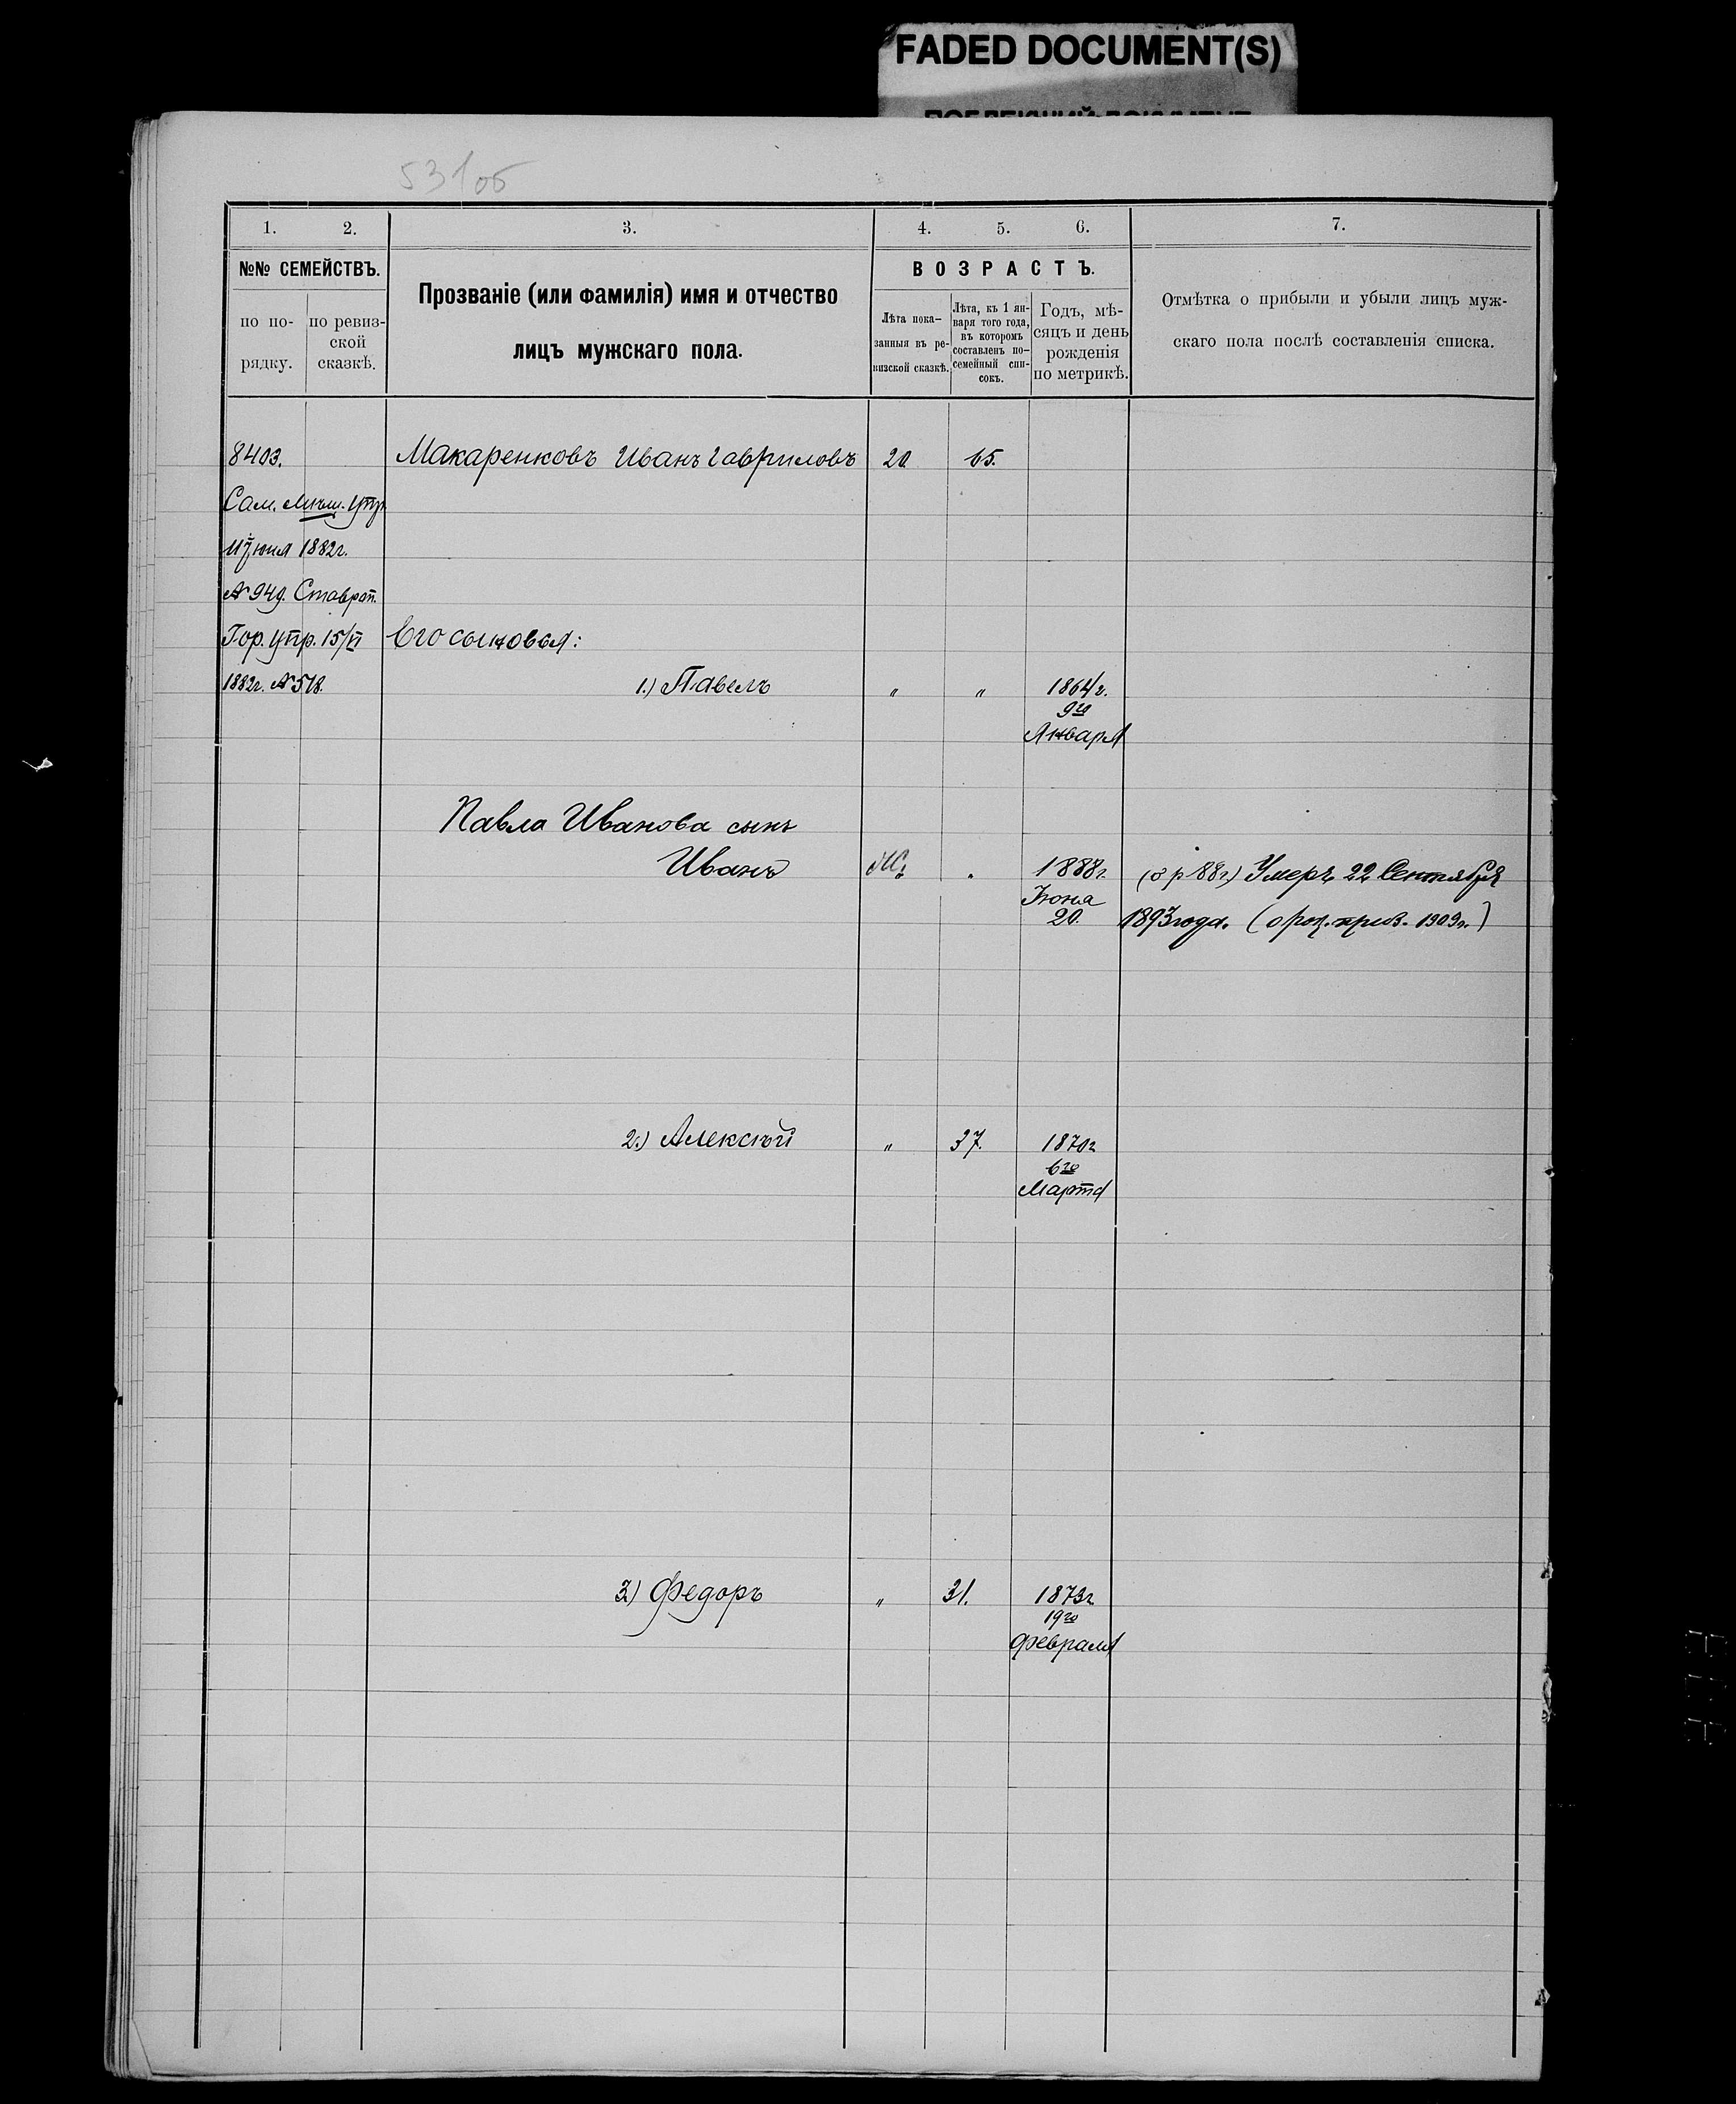 FADED DOCUMENT(S)
53 об
1. 2. 3. 4. 5. 6. 7.
№№ СЕМЕЙСТВЪ.
по по-
рядку.
по ревиз-
ской
сказкѣ.
Прозваніе (или фамилія) имя и отчество
лицъ мужскаго пола.
ВОЗРАСТЪ.
Лѣта пока-
занныя въ ре-
визской сказкѣ.
Лѣта, къ 1 ян-
варя того года,
въ которомъ
составленъ по-
семейный спи-
сокъ.
Годъ, мѣ-
сяцъ и день
рожденія
по метрикѣ.
Отмѣтка о прибыли и убыли лицъ муж-
скаго пола послѣ составленія списка.
8403. Макаренковъ Иванъ Гавриловъ 20. 65.
Сам. Мѣщ. Упр.
1882г.
№ 949. Ставроп.
Гор. упр. 15/VI Его сыновья:
1882г. № 518. 1.) Павелъ " " 1864г.
9го
Января
Павла Иванова сынъ
Иванъ 1888г. (о р 88г.) Умеръ 22 Сентября
Іюня
20. 1893 года. (о роз. приз. 1909г.)
2.) Алексѣй " 37. 1870г
6го
Марта
3.) Федоръ " 31. 1873г
19го
Февраля